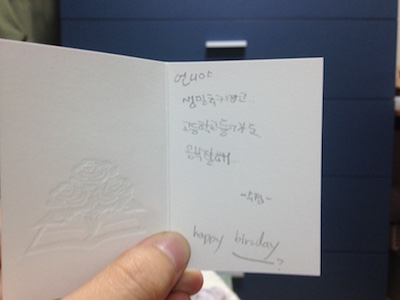 언니야
생일축하하고..
고등학교 들가서도
공부 잘해..
happy birsday
?